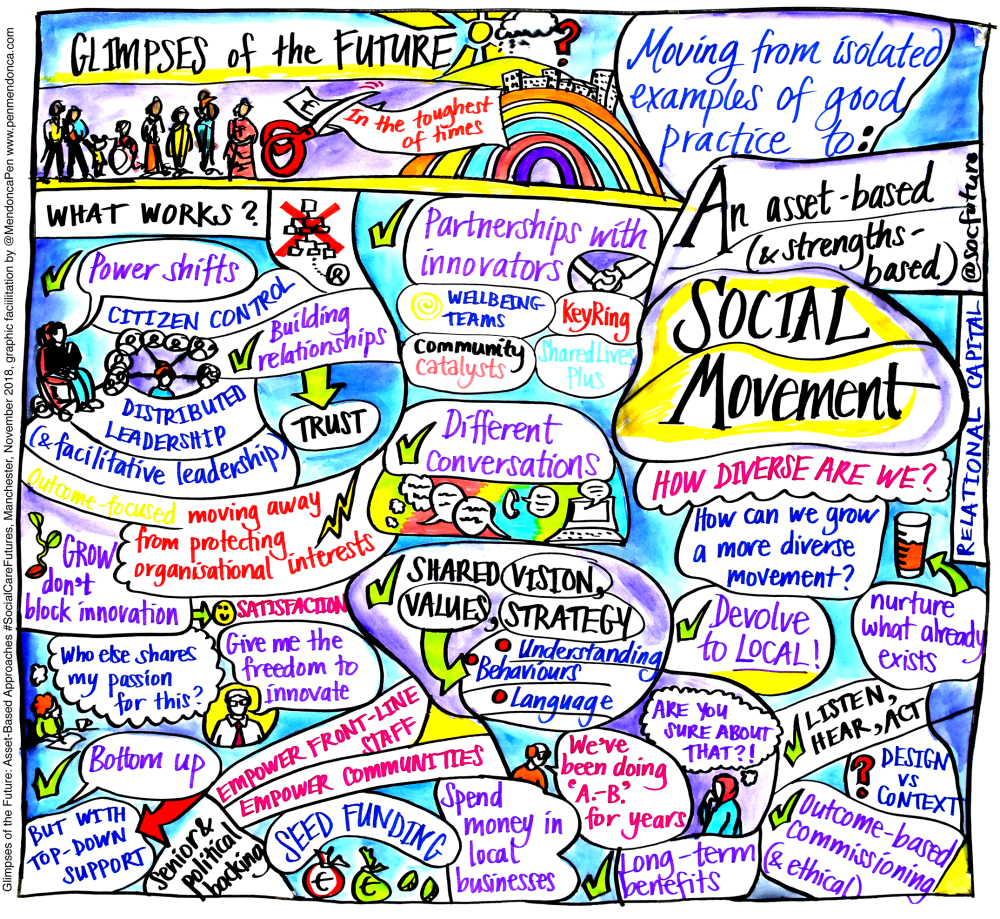 GLIMPSES of the FUTURE
?
£
In the toughest
of times
Moving from isolated
examples of good
practice to:
An asset-based
(& strengths-
based)
SOCIAL
MOVEMENT
@socfuture
RELATIONAL CAPITAL
WHAT WORKS?
®
Power shifts
CITIZEN CONTROL
Building
relationships
TRUST
DISTRIBUTED
LEADERSHIP
(& facilitative leadership)
Outcome-focused moving away
from protecting
organisational interests
GROW
don't
block innovation
SATISFACTION
Who else shares
my passion
for this?
Give me the
freedom to
innovate
Bottom up
BUT WITH
TOP-DOWN
SUPPORT
Senior &
political
backing
EMPOWER FRONT-LINE
STAFF
EMPOWER COMMUNITIES
SEED FUNDING
£
£
Partnerships with
innovators
WELLBEING
TEAMS
KeyRing
Community
catalysts
Shared Lives
Plus
Different
conversations
SHARED VISION,
VALUES, STRATEGY
Understanding
Behaviours
Language
Spend
money in
local
businesses
We've
been doing
'A.-B.'
for years
ARE YOU
SURE ABOUT
THAT?!
Long-term
benefits
HOW DIVERSE ARE WE?
How can we grow
a more diverse
movement?
nurture
what already
exists
Devolve
to LOCAL!
LISTEN,
HEAR, ACT
?
DESIGN
vs
CONTEXT
Outcome-based
commissioning
(& ethical)
Glimpses of the Future: Asset-Based Approaches #SocialCareFutures, Manchester, November 2018, graphic facilitation by @MendoncaPen www.penmendonca.com